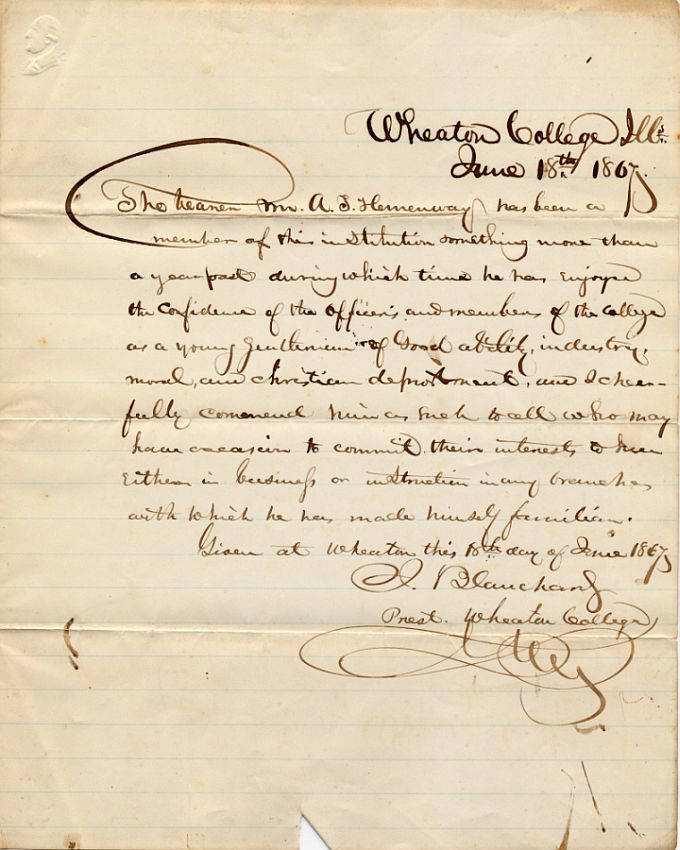 Wheaton College Ills.
June 18th 1867.
The bearer Mr. A. S. Hemenway has been a
member of this institution something more than
a year past during which time he has enjoyed
the confidence of the officers and members of the college
as a young gentleman of Good ability, industry,
moral, and christian deportment, and I cheer-
fully commend him as such to all who may
have occasion to commit their interests to him
Either in business or instruction in any branches
with which he has made himself familiar.
Given at Wheaton this 18th day of June 1867
J. Blanchard
Prest. Wheaton College